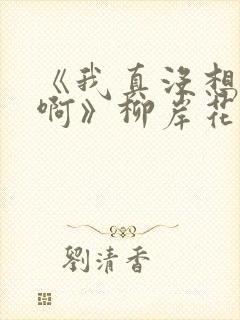 《我真没想
啊》柳岸花
劉清香